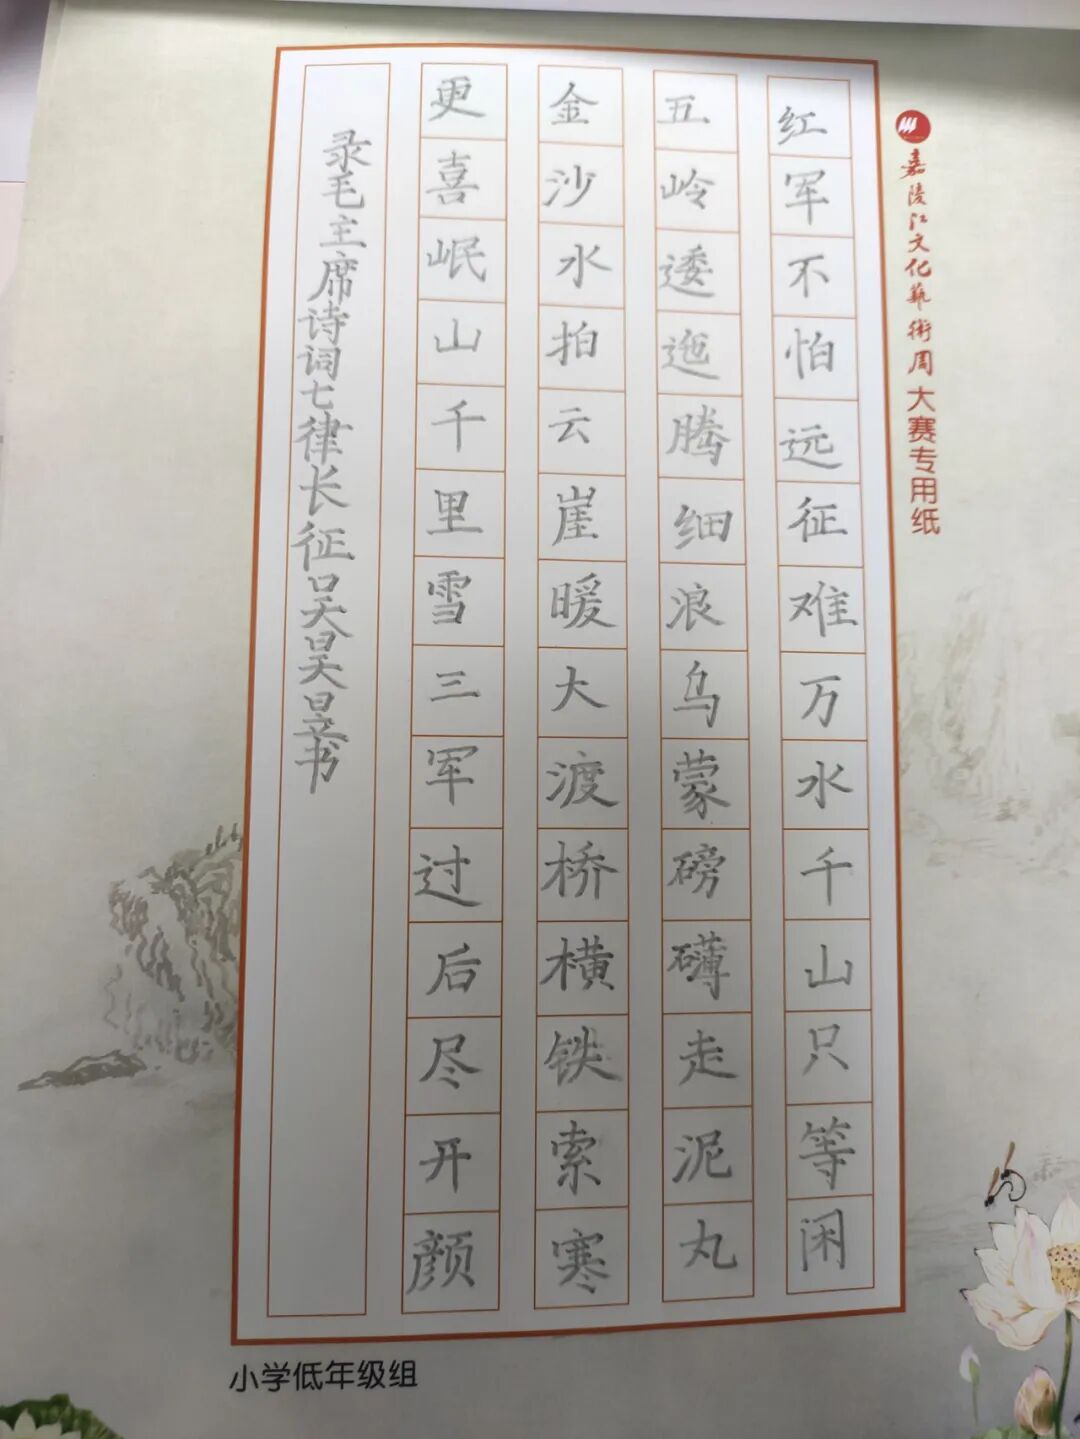 嘉陵江文化藝術周大赛专用纸
红军不怕远征难万水千山只等闲
五岭逶迤腾细浪乌蒙磅礴走泥丸
金沙水拍云崖暖大渡桥横铁索寒
更喜岷山千里雪三军过后尽开颜
录毛主席诗词七律长征吴昊昱书
小学低年级组